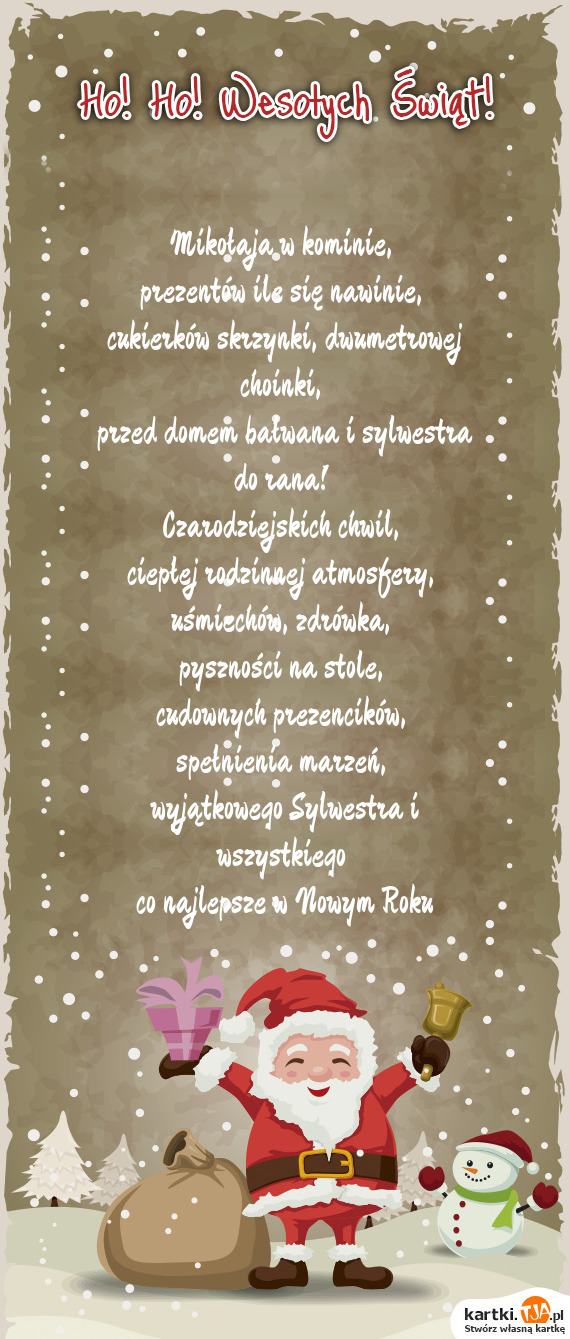 Ho! Ho! Wesołych Świąt!
Mikołaja w kominie,
prezentów ile się nawinie,
cukierków skrzynki, dwumetrowej
choinki,
przed domem bałwana i sylwestra
do rana!
Czarodziejskich chwil,
ciepłej rodzinnej atmosfery,
uśmiechów, zdrówka,
pyszności na stole,
cudownych prezencików,
spełnienia marzeń,
wyjątkowego Sylwestra i
wszystkiego
co najlepsze w Nowym Roku
kartki.TJA.pl
Stwórz własną kartkę